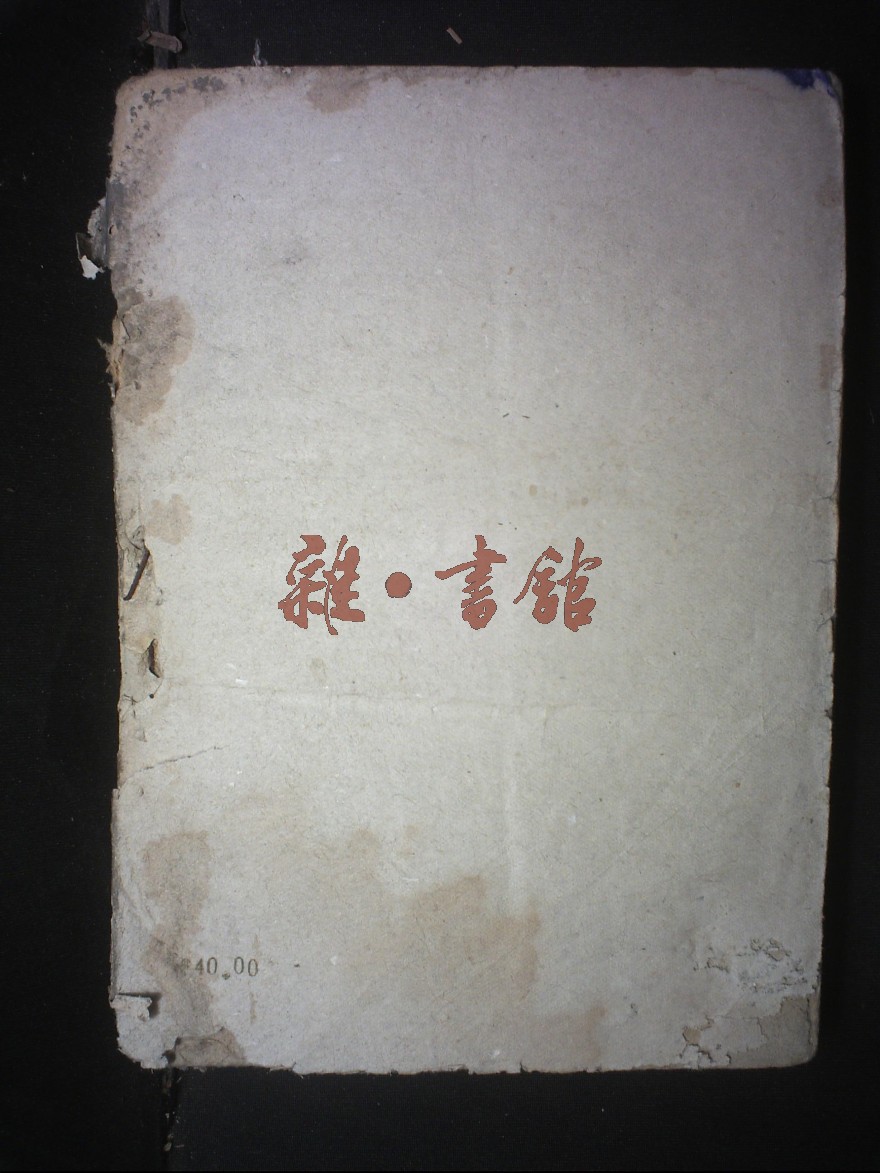 雜·書館
40.00